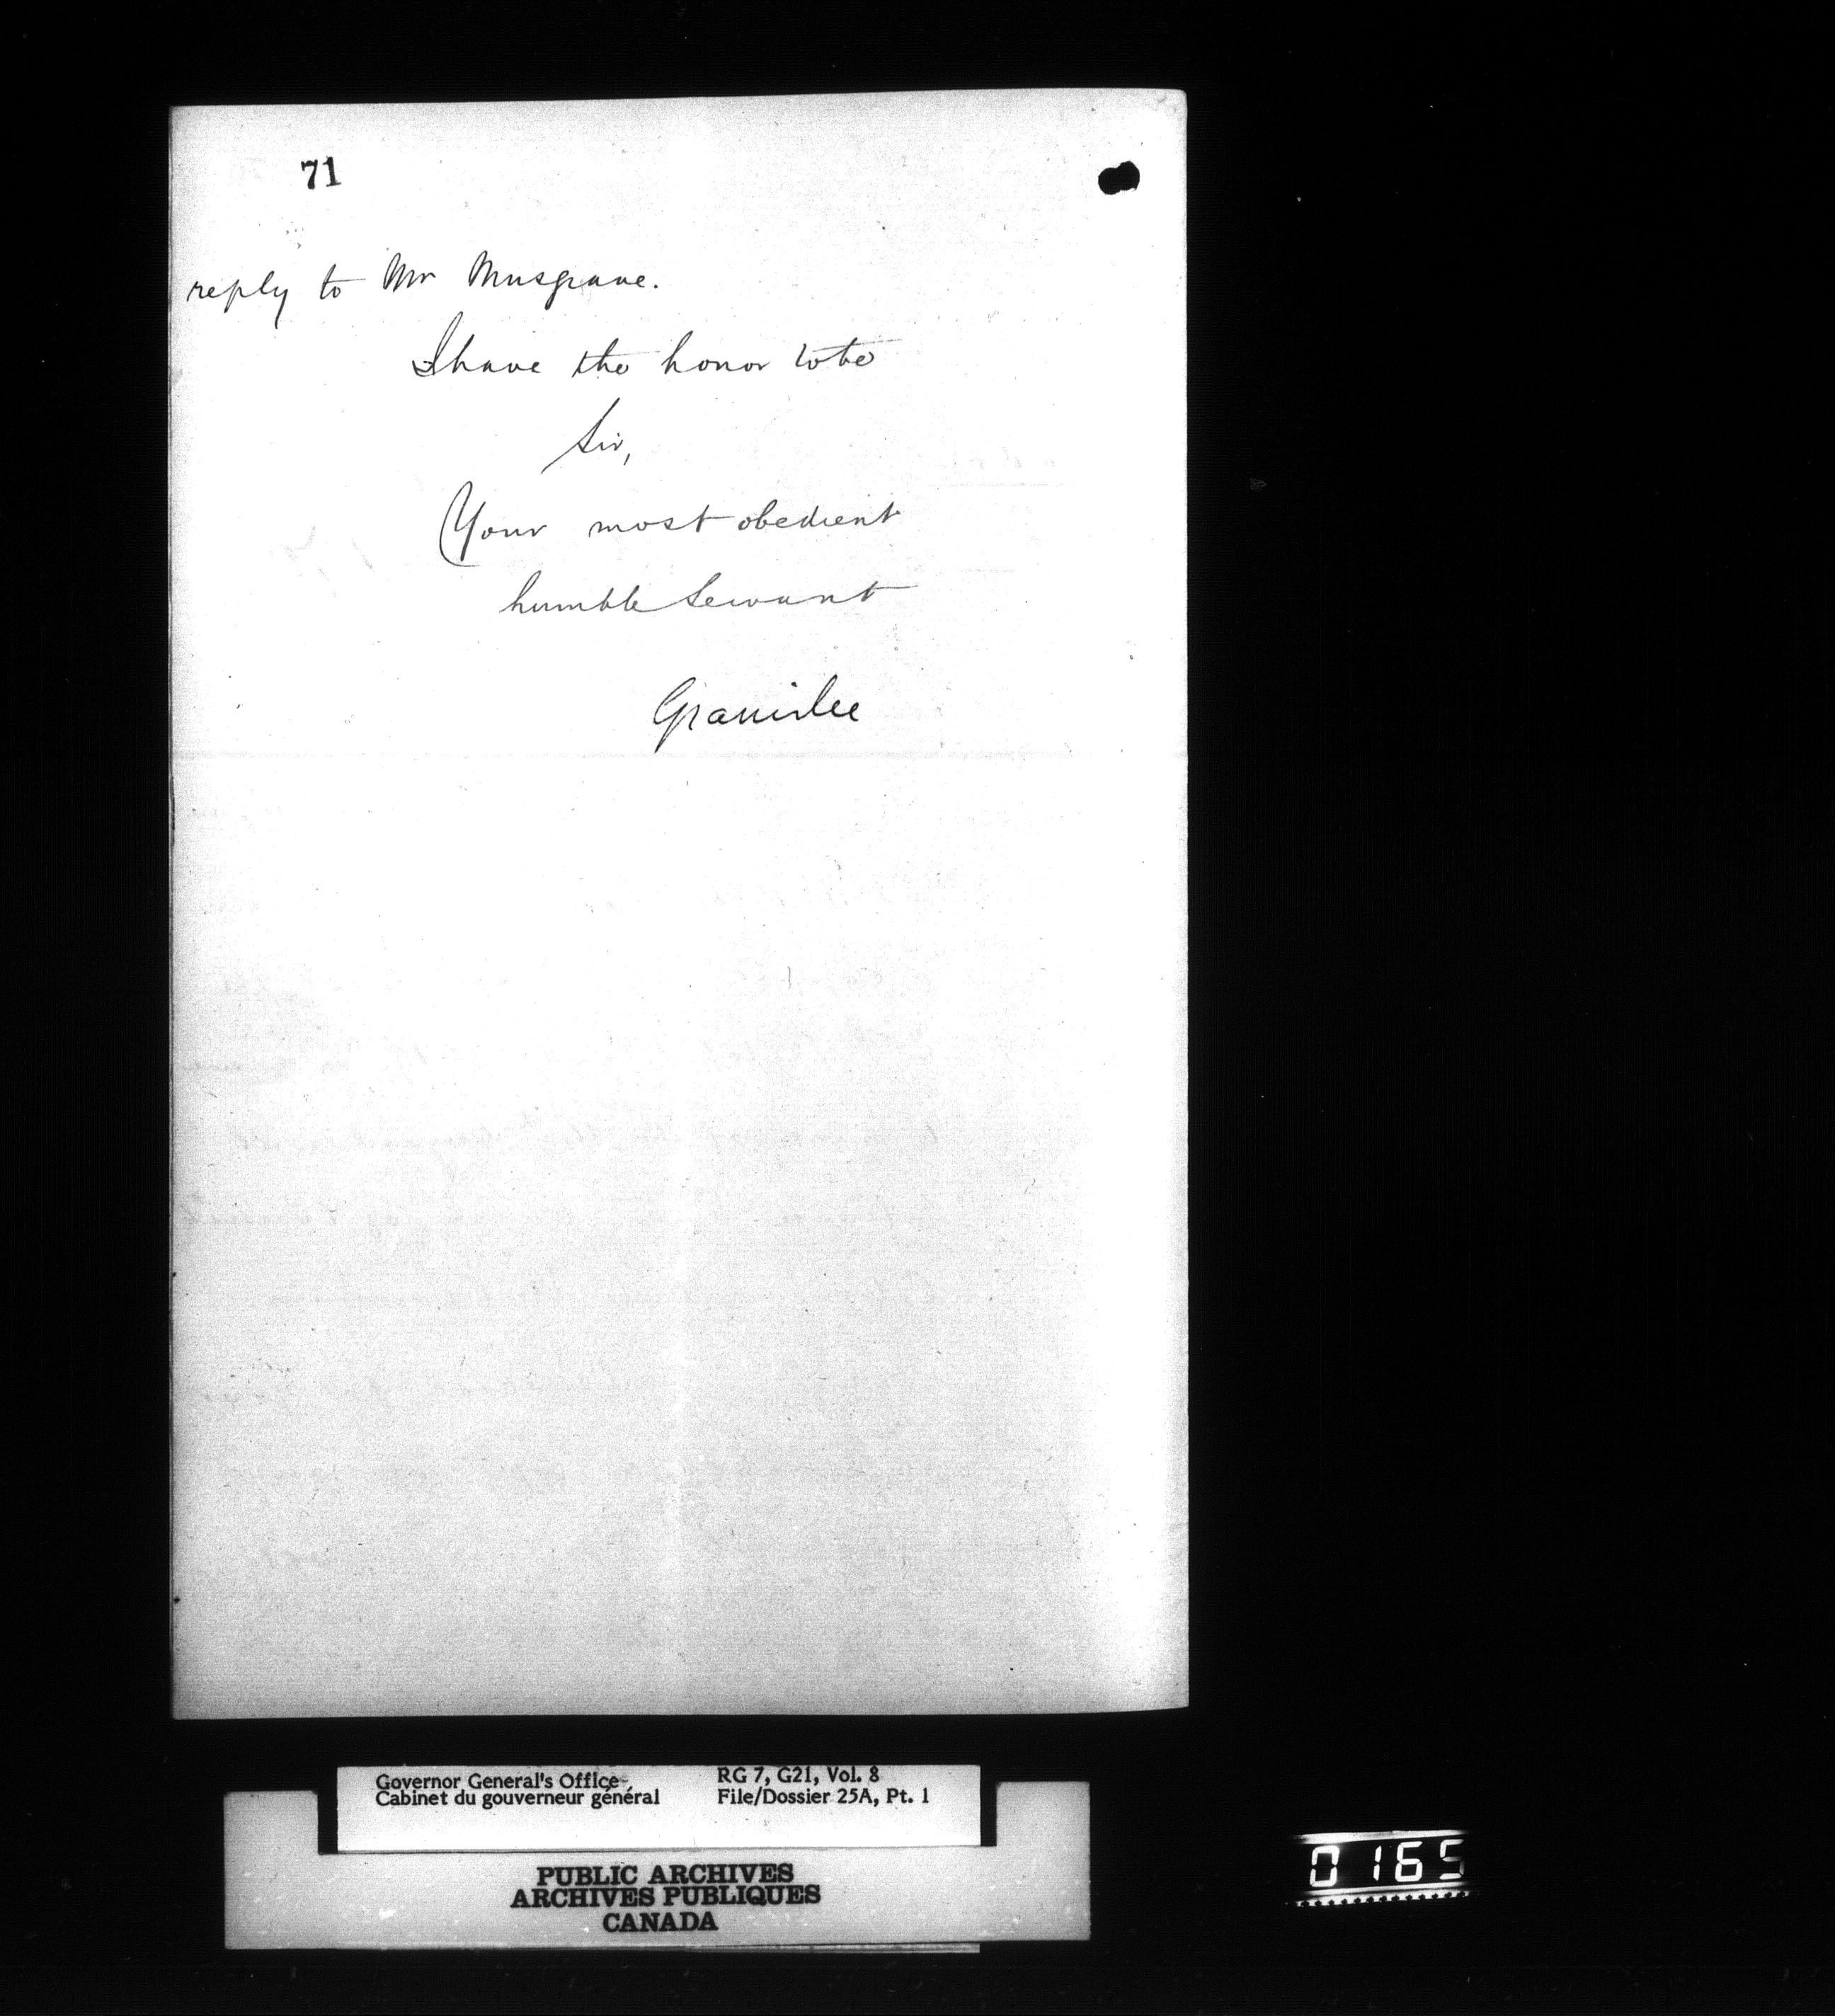 71
reply to Mr Musgrave.
I have the honor to be
Sir,
Your most obedient
humble Servant
Granville
Governor General's Office
Cabinet du gouverneur général
RG 7, G21, Vol. 8
File/Dossier 25A, Pt. 1
PUBLIC ARCHIVES
ARCHIVES PUBLIQUES
CANADA
0165